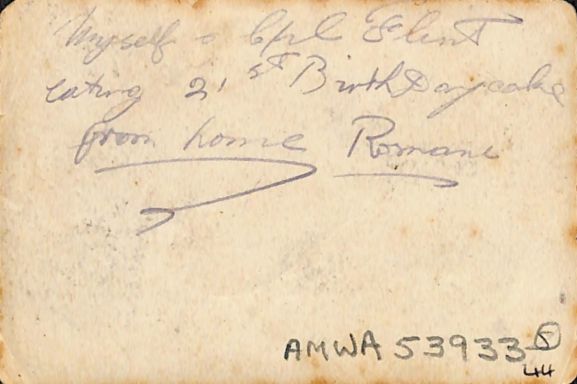 Myself & Cpl Flint
eating 21st Birth Day cake
from home Romani
AMWA 53933 5
44